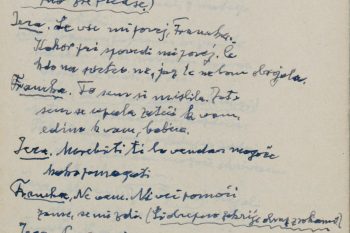 Jera. Le vse mi povej, Francka.
Kakor pri spovedi mi povej. Če
kdo na svetu ne, jaz te ne bom obsojala.
Francka. To sem si mislila. Zato
sem se upala zateči k vam,
edino k vam, babica.
Jera. Morebiti ti bo vendar mogoče
kako pomagati
Francka. Ne vem. Ni več pomoči
zame, se mi zdi. (Si zakrije obraz z rokami)